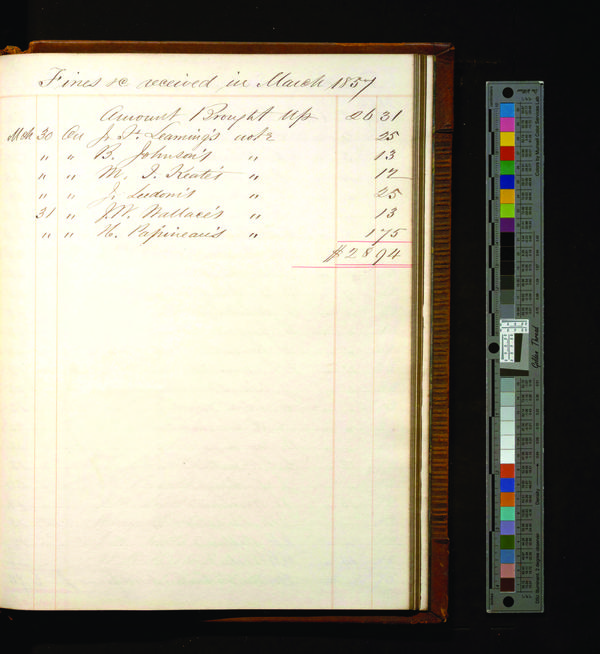 Fines &c received in March 1857
Amount Brought Up 26 31
Mch 30 On J. Leaming's note 25
" " B. Johnson's " 13
" " M. I. Keate's " 12
" " J. " 25
31 " J.W. Wallace's " 13
" " H. Papineau's " 1 75
$28 94
Golden Thread